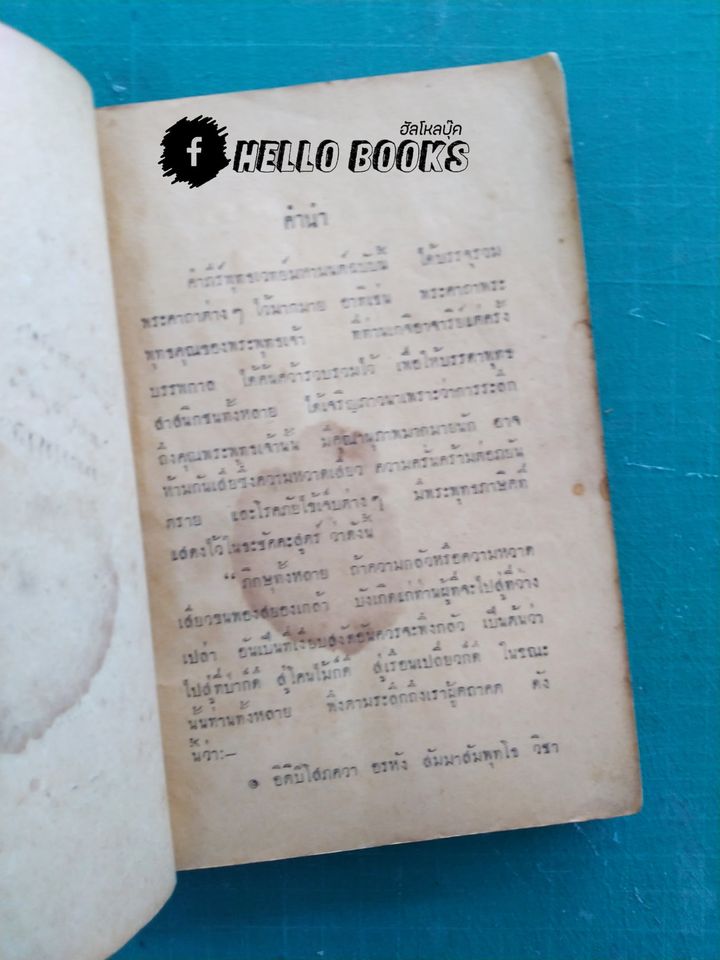 ฮัลโหลบุ๊ค
f HELLO BOOKS
คำนำ
คำภีร์พุทธเวทย์มหามนต์ฉบับนี้ ได้บรรจุรวม
พระคาถาต่าง ๆ ไว้มากมาย อาทิเช่น พระคาถาพระ
พุทธคุณของพระพุทธเจ้า ที่ท่านเกจิอาจารย์แต่ครั้ง
บรรพกาล ได้ค้นคว้ารวบรวมไว้ เพื่อให้บรรดาพุทธ
ศาสนิกชนทั้งหลาย ได้เจริญภาวนาเพราะว่าการระลึก
ถึงคุณพระพุทธเจ้านั้น มีคุณานุภาพมากมายนัก อาจ
ห้ามกันเสียซึ่งความหวาดเสียว ความครั่นคร้ามต่อภยัน
ตราย และโรคภัยไข้เจ็บต่าง ๆ มีพระพุทธภาษิตที่
แสดงไว้ในธะชัคคะสูตร์ ว่าดังนี้
“ ภิกษุทั้งหลาย ถ้าความกลัวหรือความหวาด
เสียวขนพองสยองเกล้า บังเกิดแก่ท่านผู้ที่จะไปสู่ที่ว่าง
เปล่า อันเป็นที่เงียบสงัดอันควรจะพึงกลัว เป็นต้นว่า
ไปสู่ที่ป่าก็ดี สู่โคนไม้ก็ดี สู่เรือนเปลี่ยวก็ดี ในขณะ
นั้นท่านทั้งหลาย พึงตามระลึกถึงเราผู้ตถาคต ดัง
นี้ว่า:–
๑ อิติปิโสภควา อรหัง สัมมาสัมพุทโธ วิชา